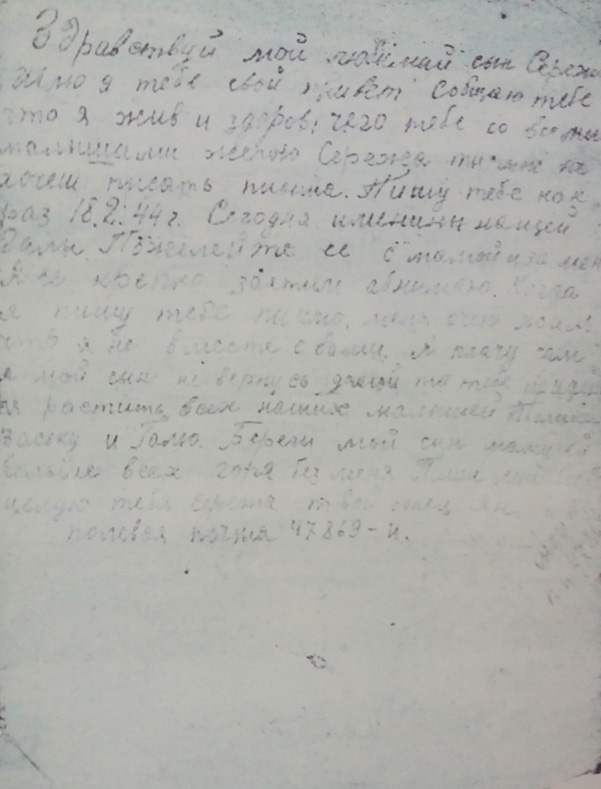 Здравствуй мой любимай сын Сережа
шлю я тебе свой привет Собщаю тебе
что я жив и здоров, чего тебе со всеми
малышами желаю Сережа ты мне не
хочеш писать писма. Пишу тебе как
раз 18.2.44 г. Сегодня именины нашей
Гали. Пожелейте ее с мамой за меня
Я ее крепко обнимаю. Когда
я пишу тебе писмо, меня очен жаль
что я не вместе с вами, я плачу
я мой сын не вернусь домой то тебе
ся растить всех наших малышей
Ваську и Галю. Береги мой сын маму ей
больше всех горя без меня
целую тебя сережа твой отец
полевая почта 47869-и.